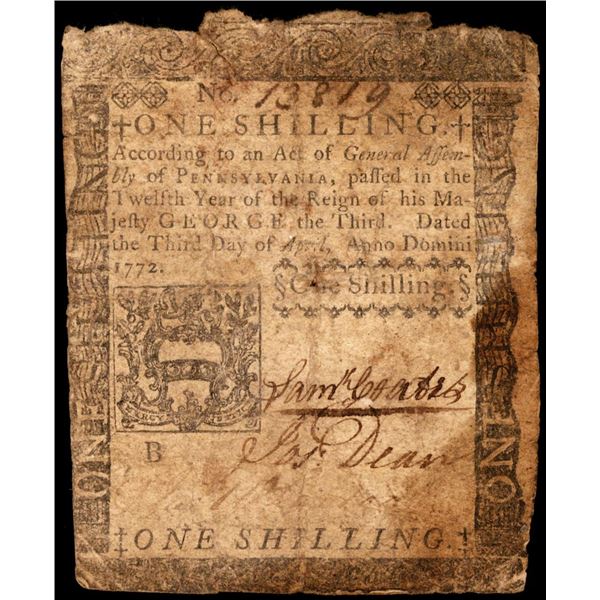 No. 13819
‡ONE SHILLING.‡
According to an Act of General Aſſem-
bly of PENNSYLVANIA, paſſed in the
Twelfth Year of the Reign of his Ma-
jeſty GEORGE the Third. Dated
the Third Day of April, Anno Domini
1772.
§One Shilling.§
MERCY JUSTICE
Saml. Coates
Jos. Dean
B
‡ONE SHILLING.‡
ONE SHILLING
ONE SHILLING